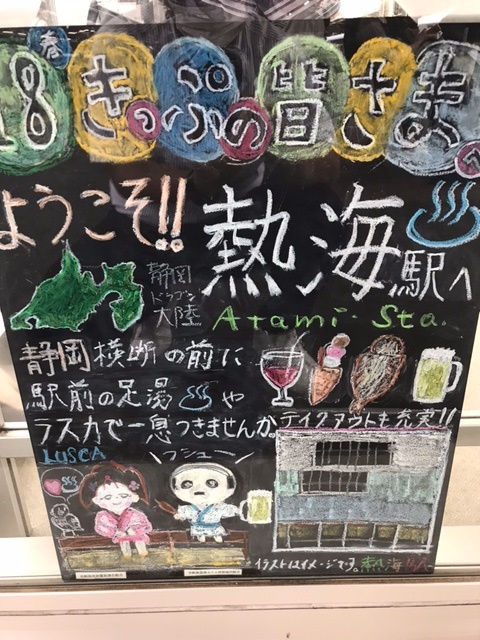 春
18きっぷの皆さまへ
ようこそ!!
熱海駅へ
Atami・Sta.
静岡
ドラゴン
大陸
静岡横断の前に
駅前の足湯♨や
ラスカで一息つきませんか。
テイクアウトも充実!!
LUSCA
\プシュー/
イラストはイメージです。